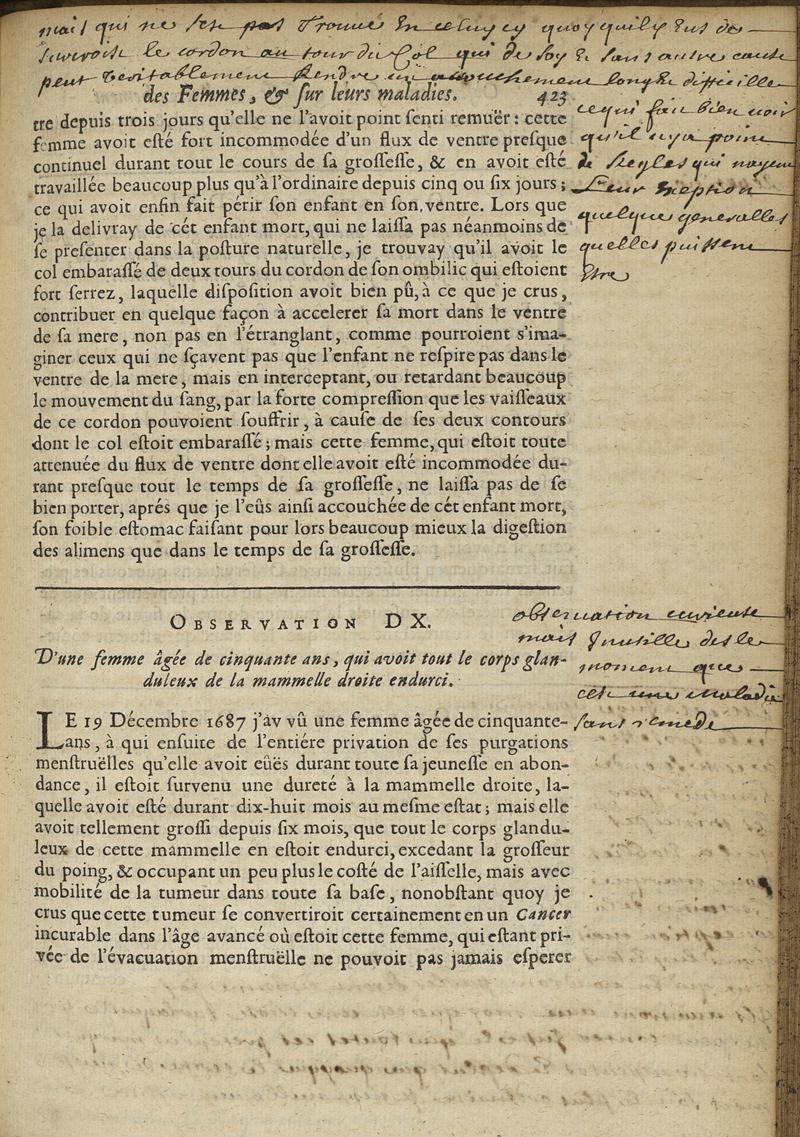 mais qui ne s'est pas trouvé en celuy cy quoy quil y eut de
le cordon au tour du Col qui de soy & sans autre cause
peut veritablement Rendre un accouchement long & difficille
des Femmes, & ſur leurs maladies. 423
ce qui fait bien voir
qu'il n'ya point
de Regles qui nayent
Leur Exception
quelque generalles
quelles puissent
Etre
tre depuis trois jours qu'elle ne l'avoit point ſenti remuër : cette
femme avoit eſté fort incommodée d'un flux de ventre preſque
continuel durant tout le cours de ſa groſſeſſe, & en avoit eſté
travaillée beaucoup plus qu'à l'ordinaire depuis cinq ou ſix jours ;
ce qui avoit enfin fait périr ſon enfant en ſon ventre. Lors que
je la delivray de cét enfant mort, qui ne laiſſa pas néanmoins de
ſe preſenter dans la poſture naturelle, je trouvay qu'il avoit le
col embaraſſé de deux tours du cordon de ſon ombilic qui eſtoient
fort ſerrez, laquelle diſpoſition avoit bien pû, à ce que je crus,
contribuer en quelque façon à accelerer ſa mort dans le ventre
de ſa mere, non pas en l'étranglant, comme pourroient s'ima-
giner ceux qui ne ſçavent pas que l'enfant ne reſpire pas dans le
ventre de la mere, mais en interceptant, ou retardant beaucoup
le mouvement du ſang, par la forte compreſſion que les vaiſſeaux
de ce cordon pouvoient ſouffrir, à cauſe de ſes deux contours
dont le col eſtoit embaraſſé ; mais cette femme, qui eſtoit toute
attenuée du flux de ventre dont elle avoit eſté incommodée du-
rant preſque tout le temps de ſa groſſeſſe, ne laiſſa pas de ſe
bien porter, aprés que je l'eûs ainſi accouchée de cét enfant mort,
ſon foible eſtomac faiſant pour lors beaucoup mieux la digeſtion
des alimens que dans le temps de ſa groſſeſſe.
OBSERVATION DX.
D'une femme âgée de cinquante ans, qui avoit tout le corps glan-
duleux de la mammelle droite endurci.
observation curieuse
mais Inutille des le
moment que
cest une maladie
sans remede
LE 19 Décembre 1687 j'ay vû une femme âgée de cinquante-
ans, à qui enſuite de l'entiére privation de ſes purgations
menſtruëlles qu'elle avoit eûës durant toute ſa jeuneſſe en abon-
dance, il eſtoit ſurvenu une dureté à la mammelle droite, la-
quelle avoit eſté durant dix-huit mois au meſme eſtat ; mais elle
avoit tellement groſſi depuis ſix mois, que tout le corps glandu-
leux de cette mammelle en eſtoit endurci, excedant la groſſeur
du poing, & occupant un peu plus le coſté de l'aiſſelle, mais avec
mobilité de la tumeur dans toute ſa baſe, nonobſtant quoy je
crus que cette tumeur ſe convertiroit certainement en un Cancer
incurable dans l'âge avancé où eſtoit cette femme, qui eſtant pri-
vée de l'évacuation menſtruëlle ne pouvoit pas jamais eſperer